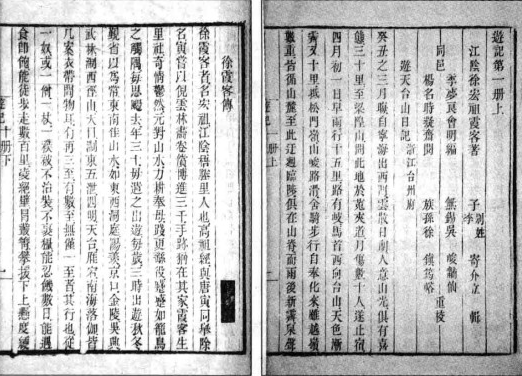 遊記第一册上
江陰徐宏祖霞客著 子李寄介立 輯
李夢良會明編 無錫吳 峻
同邑
楊名時凝齋閱 族孫徐 鎮筠峪 重校
遊天台山日記 浙江台州府
癸丑之三月晦自寧海出西門雲散日朗人意山光俱有喜
態三十里至梁隍山聞此地於菟夾道月傷數十人遂止宿
四月初一日早雨行十五里路有岐馬首西向台山天色漸
霽又十里抵松門嶺山峻路滑舍騎步行自奉化來雖越嶺
數重皆循山麓至此迂迴臨陟俱在山脊而雨後新霽泉聲
遊記 一册上
徐霞客傳
徐霞客者名宏祖江陰梧塍里人也高祖經與唐寅同舉除
名寅嘗以倪雲林畫卷償博進三千手跡猶在其家霞客生
里社奇情鬱然元對山水力耕奉母踐更繇役蹙蹙如籠鳥
之觸隅每思颺去年三十母遣之出遊每歲三時出遊秋冬
覲省以為常東南佳山水如東西洞庭陽羨京口金陵吳興
武林浙西徑山天目浙東五洩四明天台雁宕南海落伽皆
几案衣帶間物耳有再三至有數至無僅一至者其行也從
一奴或一僧一杖一襆被不治裝不裹糧能忍饑數日能遇
食即飽能徒步走數百里凌絕壁冒叢箐攀援下上懸度綆
遊記 十册下